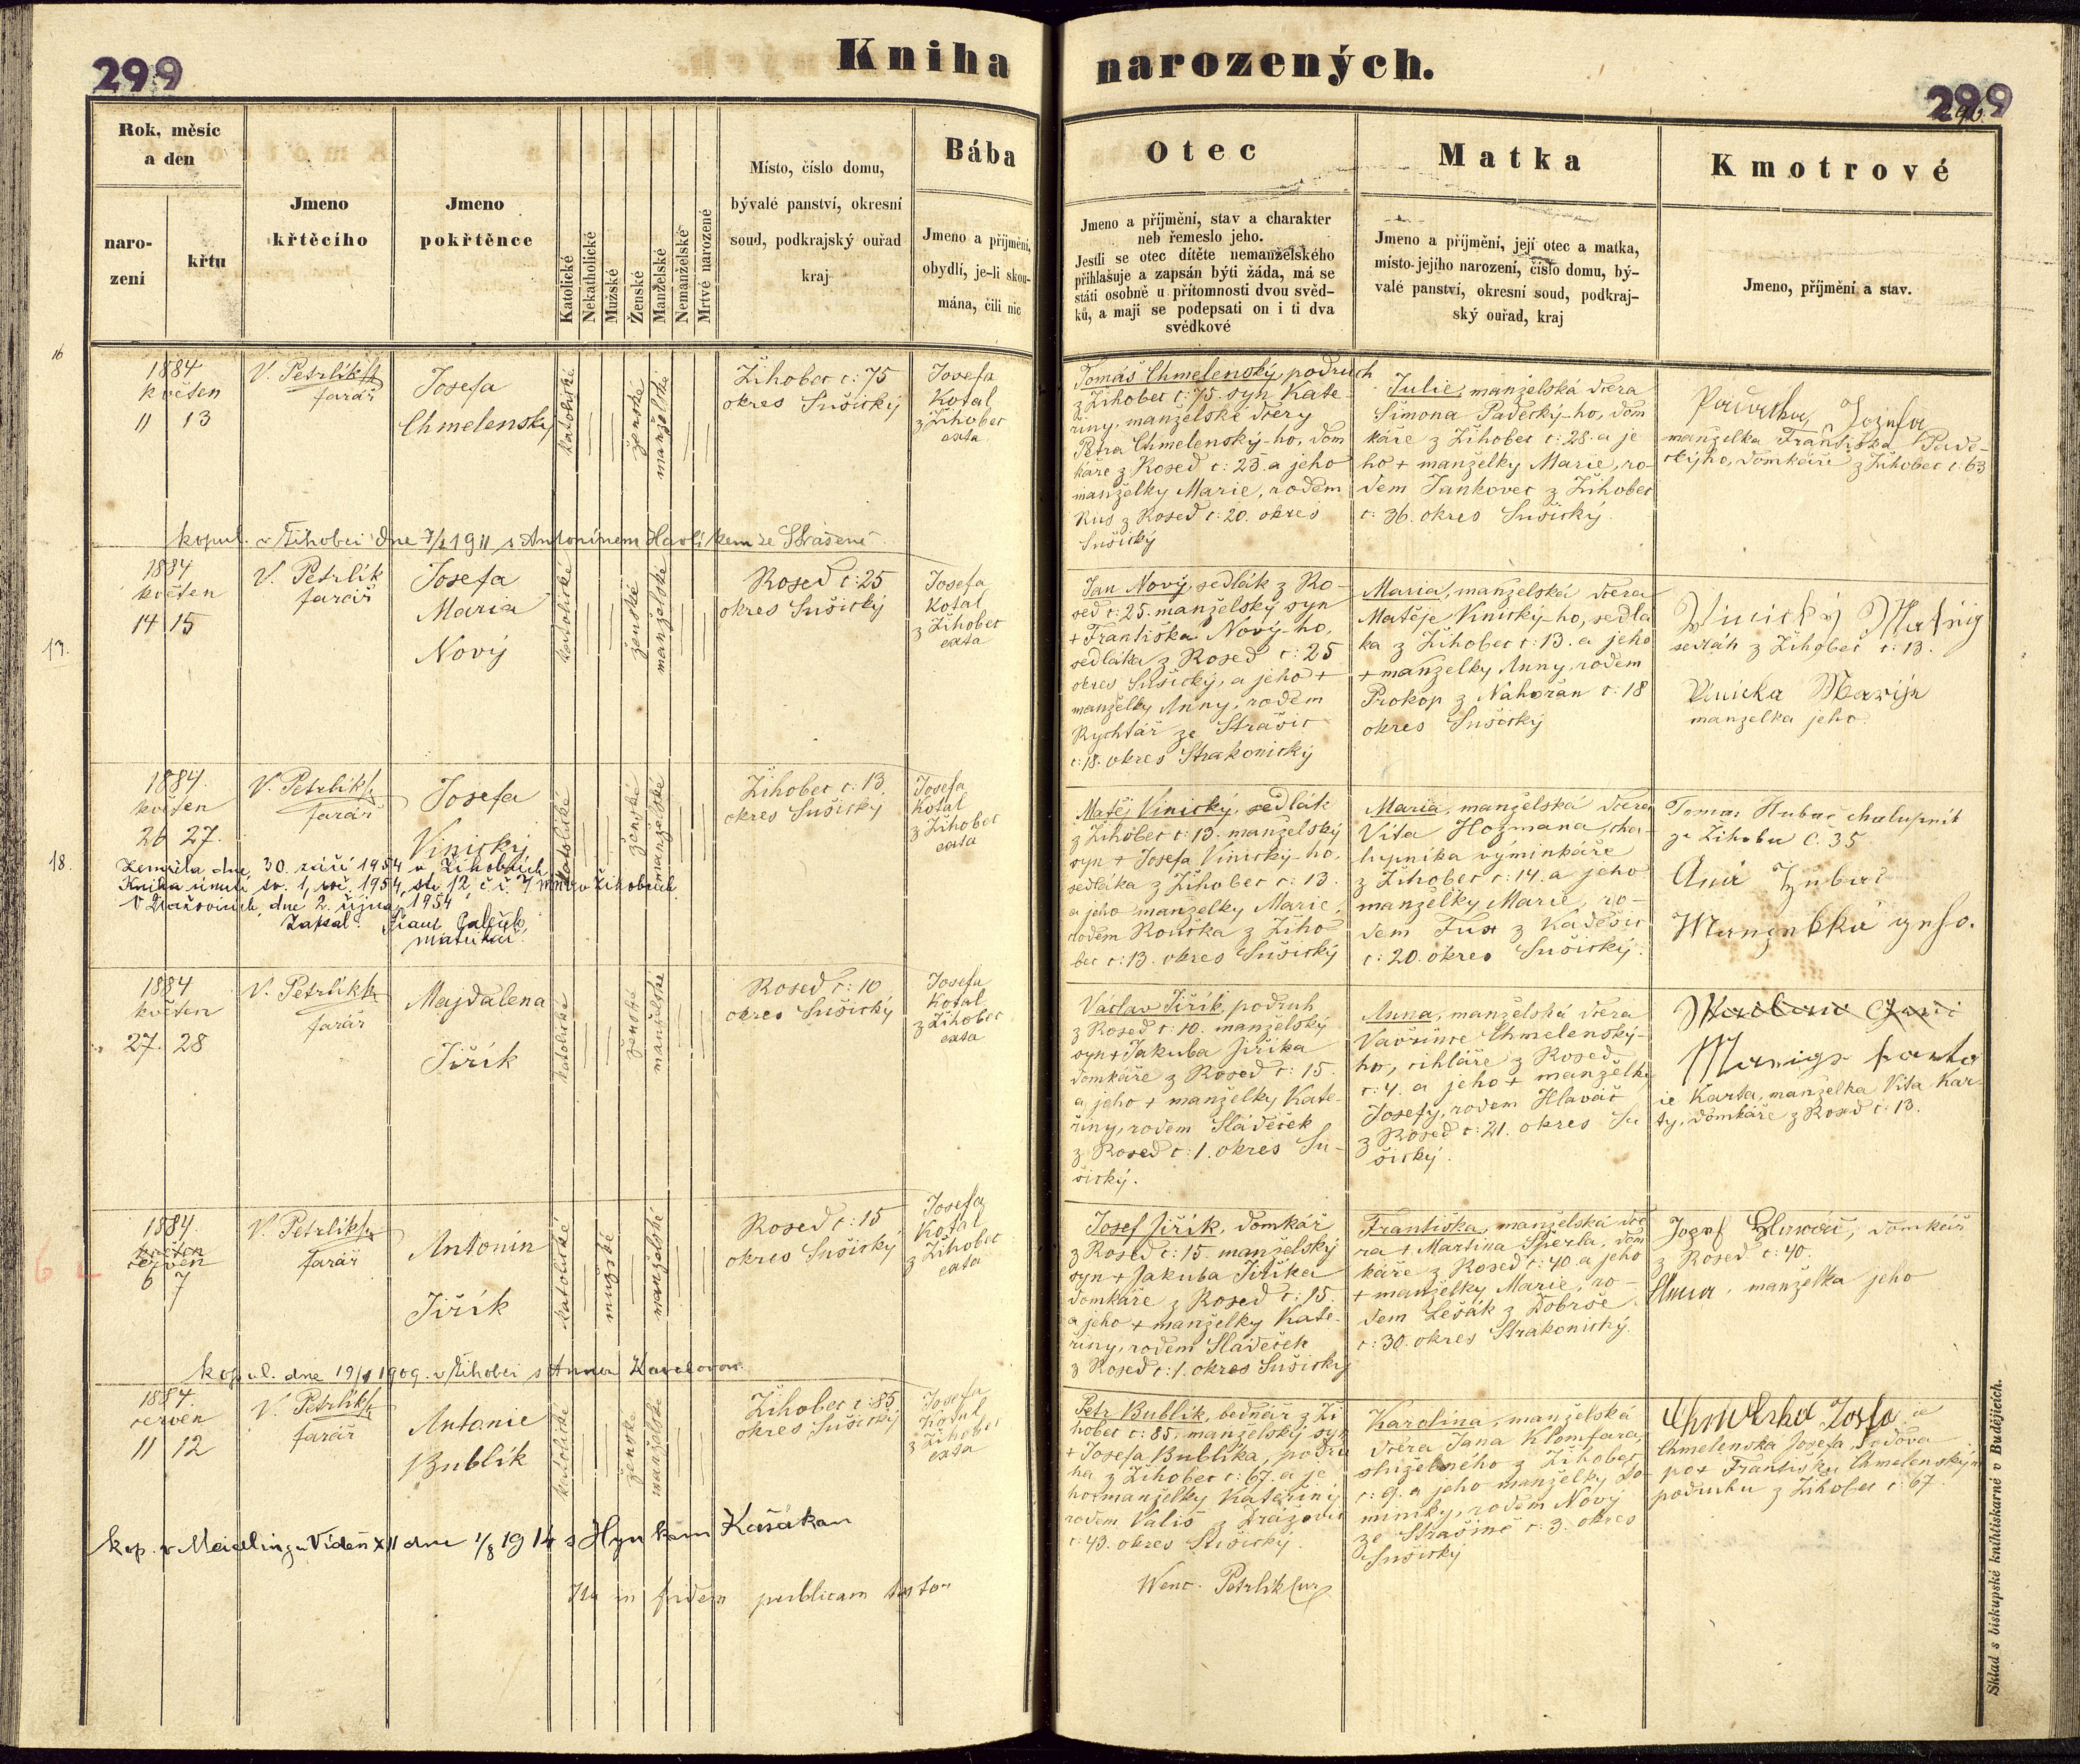 299
Kniha narozených.
299
296.
Rok, měsíc
a den
naro-
zení
křtu
Jmeno
křtěcího
Jmeno
pokřtěnce
Katolické
Nekatholické
Mužské
Ženské
Manželské
Nemanželské
Mrtvé narozené
Místo, číslo domu,
bývalé panství, okresní
soud, podkrajský ouřad
kraj
Bába
Jmeno a příjmění,
obydlí, je-li skou-
mána, čili nic
Otec
Jmeno a příjmění, stav a charakter
neb řemeslo jeho.
Jestli se otec dítěte nemanželského
přihlašuje a zapsán býti žáda, má se
státi osobně u přítomnosti dvou svěd-
ků, a mají se podepsati on i ti dva
svědkové
Matka
Jmeno a příjmění, její otec a matka,
místo jejího narození, číslo domu, bý-
valé panství, okresní soud, podkraj-
ský ouřad, kraj
Kmotrové
Jmeno, příjmění a stav.
16
1884
květen
11 13
V. Petrlík
farář
Josefa
Chmelenský
katolické
ženské
manželské
Žihobec č: 75
okres Sušický
Josefa
Kotal
z Žihobec
exta
Tomáš Chmelenský, podruh
z Žihobec č: 75. syn Kate-
řiny, manželské dcery
Petra Chmelenský-ho, dom
káře z Rosed č: 25 a jeho
manželky Marie, rodem
Rus z Rosed č: 20. okres
Sušický
Julie, manželská dcera
Šimona Padecký-ho, dom
káře z Žihobec č: 28. a je
ho + manželky Marie, ro-
dem Jankovec z Žihobec
č: 36. okres Sušický.
Josefa
manželka Františka Pade-
ckýho, domkáře z Žihobec č: 63
kopul. v Žihobci dne 7/2 1911 s Antonínem Havlíkem ze Strašeně
13.
1884
květen
14 15
V. Petrlík
farář
Josefa
Maria
Nový
katolické
ženské
manželské
Rosed č: 25
okres Sušický
Josefa
Kotal
z Žihobec
exta
Jan Nový, sedlák z Ro-
sed č: 25. manželský syn
+ Františka Nový-ho,
sedláka z Rosed č: 25
okres Sušický, a jeho +
manželky Anny, rodem
Rychtář ze Strašic
č: 18. okres Strakonický
Maria, manželská dcera
Matěje Vinický-ho, sedlá
ka z Žihobec č: 13. a jeho
+ manželky Anny, rodem
Prokop z Nahořan č: 18
okres Sušický
Vinický Matěj
sedlák z Žihobec č: 13.
Vinicka Marija
manželka jeho.
18.
1884.
květen
26 27.
V. Petrlík
farář
Josefa
Vinický
katolické
ženské
manželské
Žihobec č: 13.
okres Sušický
Josefa
Kotal
z Žihobec
exta
Zemřela dne 30. září 1954 v Žihobcích
Kniha úmrtí sv. 1, roč. 1954, str. 12 č. ř. 7 MNV v Žihobcích
V Dražovicích, dne 2. října 1954
Zapsal:
matrikář.
Matěj Vinický, sedlák
z Žihobec č: 13. manželský
syn + Josefa Vinický-ho,
sedláka z Žihobec č: 13.
a jeho manželky Marie,
rodem Rouska z Žiho
bec č: 13. okres Sušický
Maria, manželská dcera
Víta Hozmana, cha-
lupníka výminkáře
z Žihobec č: 14. a jeho
manželky Marie, ro-
dem Fux z Kadešic
č: 20. okres Sušický.
Tomas Hubač chalupnik
ze Zihobce Č. 35
1884
květen
27. 28
V. Petrlík
farář
Majdalena
Jiřík
katolické
ženské
manželské
Rosed č: 10
okres Sušický
Josefa
Kotal
z Žihobec
exta
Vaclav Jiřík, podruh
z Rosed č: 10. manželský
syn + Jakuba Jiříka
domkáře z Rosed č: 15.
a jeho + manželky Kate-
řiny, rodem Sládeček
z Rosed č: 1. okres Su-
šický.
Anna, manželská dcera
Vavřince Chmelenský-
ho, cihláře z Rosed
č: 4. a jeho + manželky
Josefy, rodem Hlaváč
z Rosed č: 21. okres Su
šický.
ie Karta, manželka Víta Kar-
ty, domkáře z Rosed č: 13.
1884.
květen
červen
6 7
V. Petrlík
farář
Antonín
Jiřík
katolické
mužské
manželské
Rosed č: 15
okres Sušický
Josefa
Kotal
z Žihobec
exta
Josef Jiřík, domkář
z Rosed č: 15. manželský
syn + Jakuba Jiříka
domkáře z Rosed č: 15.
a jeho + manželky Kate-
řiny, rodem Sládeček
z Rosed č: 1. okres Sušický
Františka, manželská dce
ra + Martina Šperla, dom
káře z Rosed č: 40. a jeho
+ manželky Marie, ro-
dem Lešák z Dobrše
č: 30. okres Strakonický.
Josef Hlawáč, domkář
z Rosed č: 40.
Anna, manželka jeho
kopul. dne 19/ 1909. v Žihobci s Annou Karlovou.
1884.
červen
11 12
V. Petrlík
farář
Antonie
Bublík
katolické
ženské
manželské
Žihobec č: 85
okres Sušický
Josefa
Kotal
z Žihobec
exta
Petr Bublík, bednář z Ži
hobec č: 85, manželský syn
+ Josefa Bublíka, podru
ha z Žihobec č: 67. a je
ho + manželky Kateřiny,
rodem Vališ z Dražovic
č: 43. okres Sušický.
Karolina, manželská
dcera Jana Klomfara,
služebného z Žihobec
č: 9. a jeho manželky Do-
minky, rodem Nový
ze Strašíně č: 3. okres
Sušický
Chmelenska Josefa, vdova
po + Františku Chmelenským
podruhu z Žihobec č: 67.
kop. v Meidlingu Vídeň XII dne 1/8 1914 s Hynkem Kašákem
Ita in fidem publicam testor
Wenc. Petrlík
Sklad s biskupské knihtiskárně v Budějicích.